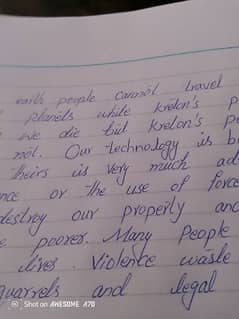 earth people cannot travel
planets while krelon's p
we die but krelon's pe
not. Our technology is b
theirs is very much ad
nce or the use of force
destroy our property and
e poorer. Many People
lives. Violence waste
quarrels and legal
Shot on AWESOME A70